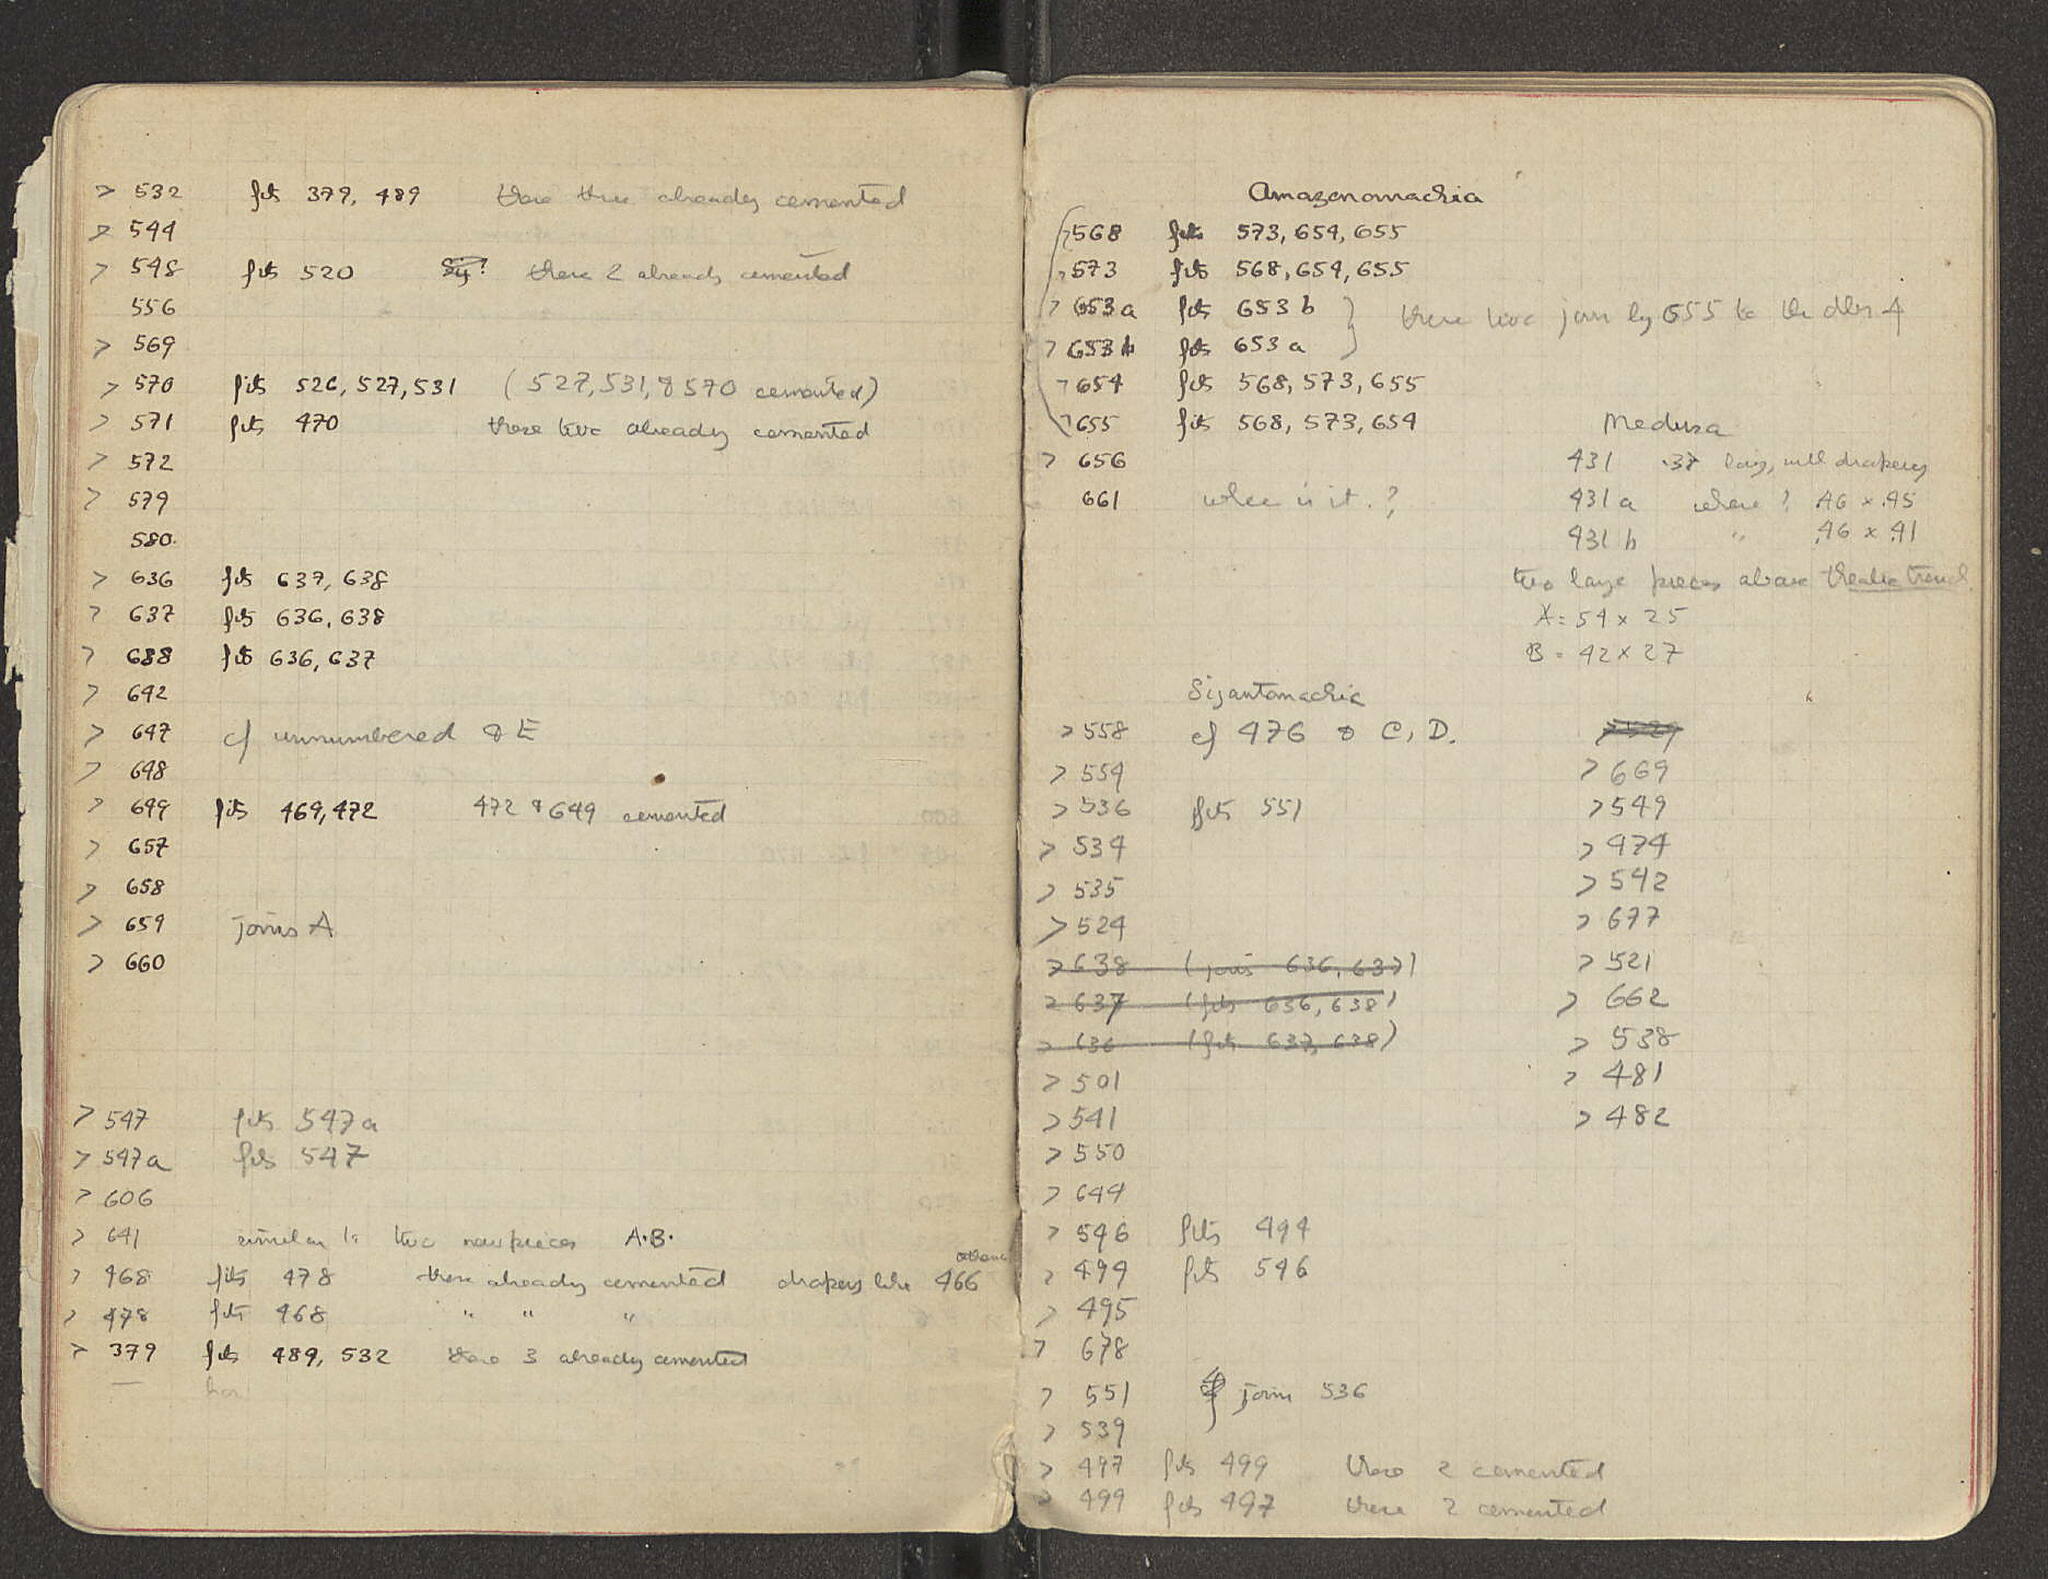 > 532 fits 379, 489 these three already cemented
> 544
> 548 fits 520 these 2 already cemented
556
> 569
> 570 fits 526, 527, 531 (527, 531, & 570 cemented)
> 571 fits 470 these two already cemented
> 572
> 579
580.
> 636 fits 637, 638
> 637 fits 636, 638
> 638 fits 636, 637
> 642
> 647 cf unnumbered & E
> 648
> 649 fits 469, 472 472 & 649 cemented
> 657
> 658
> 659 joins A
> 660
> 547 fits 547a
> 547a fits 547
> 606
> 641 similar to two new pieces A.B.
> 468 fits 478 these already cemented drapery like 466
> 478 fits 468 " " "
> 379 fits 489, 532 these 3 already cemented
Amazonomachia
> 568 fits 573, 654, 655
> 573 fits 568, 654, 655
> 653a fits 653b } these two join by 655 to the other 4
> 653b fits 653a
> 654 fits 568, 573, 655
> 655 fits 568, 573, 654
> 656
661 where is it.?
Medusa
431 .37 long, with drapery
431a where? .46 x .45
431b " .46 x .41
two large pieces above theatre trench
A = 54 x 25
B = 42 x 27
Gigantomachia
> 558 cf 476 & C, D.
> 554
> 536 fits 551
> 534
> 535
> 524
> 638 (joins 636, 637)
> 637 (fits 636, 638)
> 636 (fits 637, 638)
> 501
> 541
> 550
> 644
> 546 fits 494
> 494 fits 546
> 495
> 678
> 551 joins 536
> 539
> 497 fits 499 these 2 cemented
> 499 fits 497 these 2 cemented
> 529
> 669
> 549
> 474
> 542
> 677
> 521
> 662
> 538
> 481
> 482